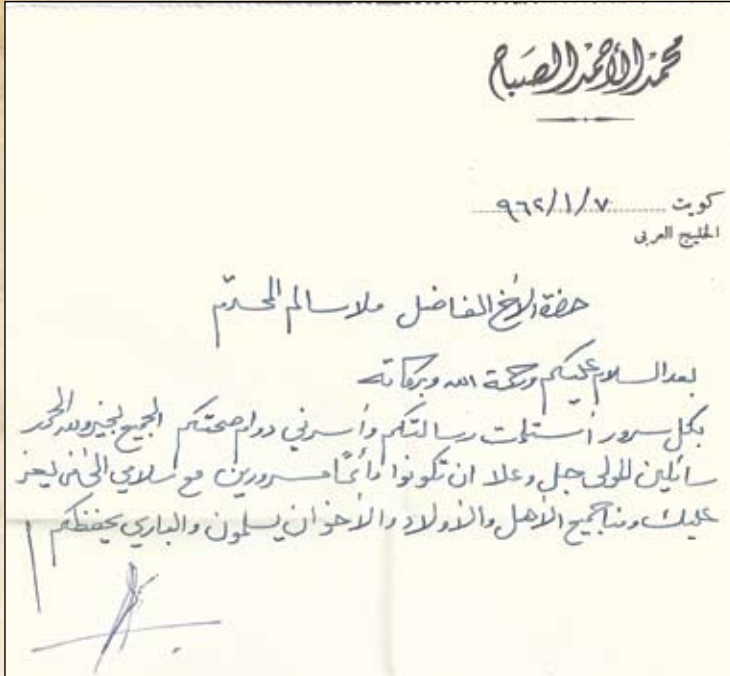 محمد الأحمد الصباح
كويت ٧/١/٩٦٢
الخليج العربى
حضرة الأخ الفاضل ملا سالم المحترم
بعد السلام عليكم ورحمة الله وبركاته
بكل سرور أستلمت رسالتكم وأسرني دوام صحتكم الجميع بخير ولله الحمد
سائلين المولى جل وعلا ان تكونوا دائماً مسرورين مع سلامي الى من يعز
عليك ومنا جميع الأهل والأولاد والأخوان يسلمون والباري يحفظكم